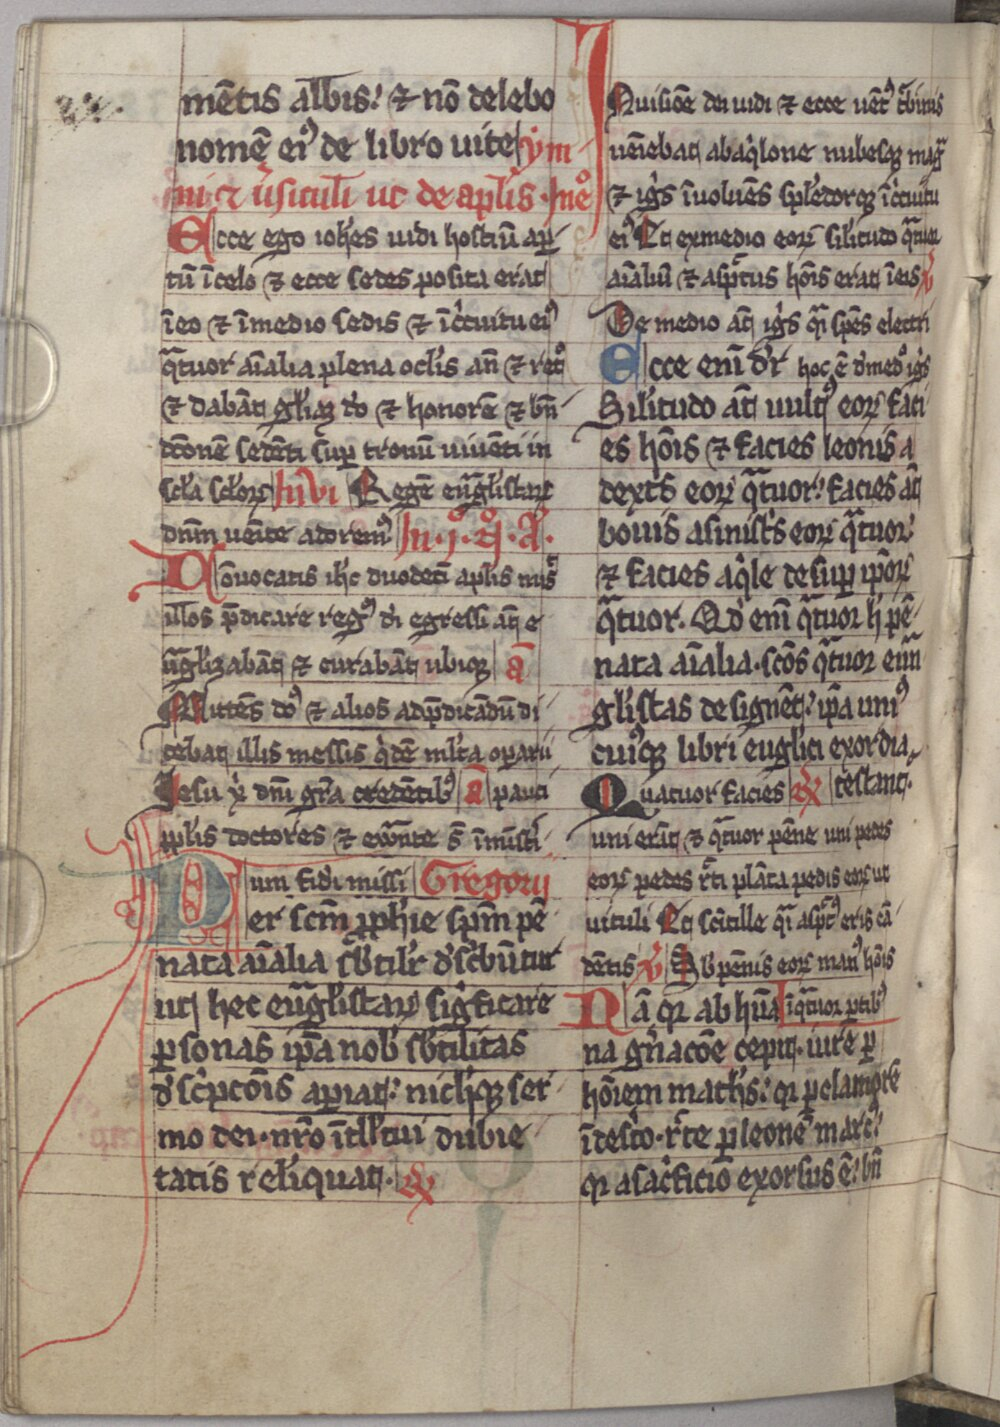 mētis albis: ⁊ nō delebo
nomē eiꝰ de libro uite ẏm
ni ⁊ v̓siculi ut de aplis. Inoͤ
Ecce ego ioh̓es uidi hostiū aꝑ
tū ī celo ⁊ ecce sedes posita erat
ī eo ⁊ ī medio sedis ⁊ ī c̓cuitu eiꝰ
q̄tuor aīalia plena oclis an̄ ⁊ ret̊
⁊ dabāt gl̓iaꝫ do ⁊ honorē ⁊ bn̄
dccōnē sedēti suꝑ tronū uiuēti in
scl̓a scl̓oꝝ Invi Regē euāgl̓istaꝝ
dnm̄ uēite adoremꝰ In. j. ꝙ. a.
Cōuocatis ih̓c duodecī aplis misit
illos p̄dicare regꝰ dī egressi āt e
uāgl̓izabāt ⁊ curabāt ubiqꝫ a
Mittēs do ⁊ alios ad p̄dicādū di
cebat illis messis q̓dē ml̓ta oꝑarii
Iesu xp̄ dn̄i gr̄a credētibꝰ a pauci
pplis doctores ⁊ ewāte s̄ īmīsti
um fidi missi Gregorij
Per scm̄ ꝓph̓ie spm̄ pē
nata aīalia sb̓tilr̓ d̓sc̓būtur
ut hec euāgl̓istaꝝ sig̓ficare
ꝑsonas ip̄a nob̓ sb̓tilitas
d̓sc̓pcōis aꝑiat: nichilqꝫ ser
mo dei. nr̄o ītll̓tui dubie
tatis reliquat. ℟
In uisiōe dei uidi ⁊ ecce uētꝰ t̓binis
ueīebat ab aq̓lone nubesqꝫ mag̓
⁊ ig̓s īuoluēs splēdorqꝫ ī c̓cuitu
eiꝰ Et ex medio eoꝝ sil̓itudo q̄tuor
aīaliū ⁊ aspc̄tus hoīs erat ī eis ℣
De medio āt ig̓s q̄i spēs electri
Ecce enī d̓r hoc ē d̓ medꝰ ig̓s
Sil̓itudo āt uultꝰ eoꝝ faci
es hoīs ⁊ facies leonis a
dext̓s eoꝝ q̄tuor: facies āt
bouis a sinist̓s eoꝝ q̄tuor:
⁊ facies aq̓le desuꝑ ip̄oꝝ
q̄tuor. Qd̓ enī q̄tuor h̓ pē
nata aīalia. scōs q̄tuor euā
gl̓istas designēt: ip̄a uniꝰ
cuiꝰqꝫ libri euāgl̓ici exordia
Quatuor facies ℟ testant.
uni erāt ⁊ q̄tuor pēne uni pedes
eoꝝ pedes rc̄ti plāta pedis eoꝝ ut
uituli Et scītille q̄i aspc̄tꝰ eris cā
dētis ℣ Sb̓ pēnis eoꝝ manꝰ hoīs
Nā qꝛ ab hūa ī q̄tuor ꝑtibꝰ
na gn̄acōe cepit. iure ꝑ
hoīem math̓s: qꝛ ꝑ clamorē
ī des̓to. rc̄te ꝑ leonē marcꝰ:
qꝛ a sac̓ficio exorsus ē: bn̄